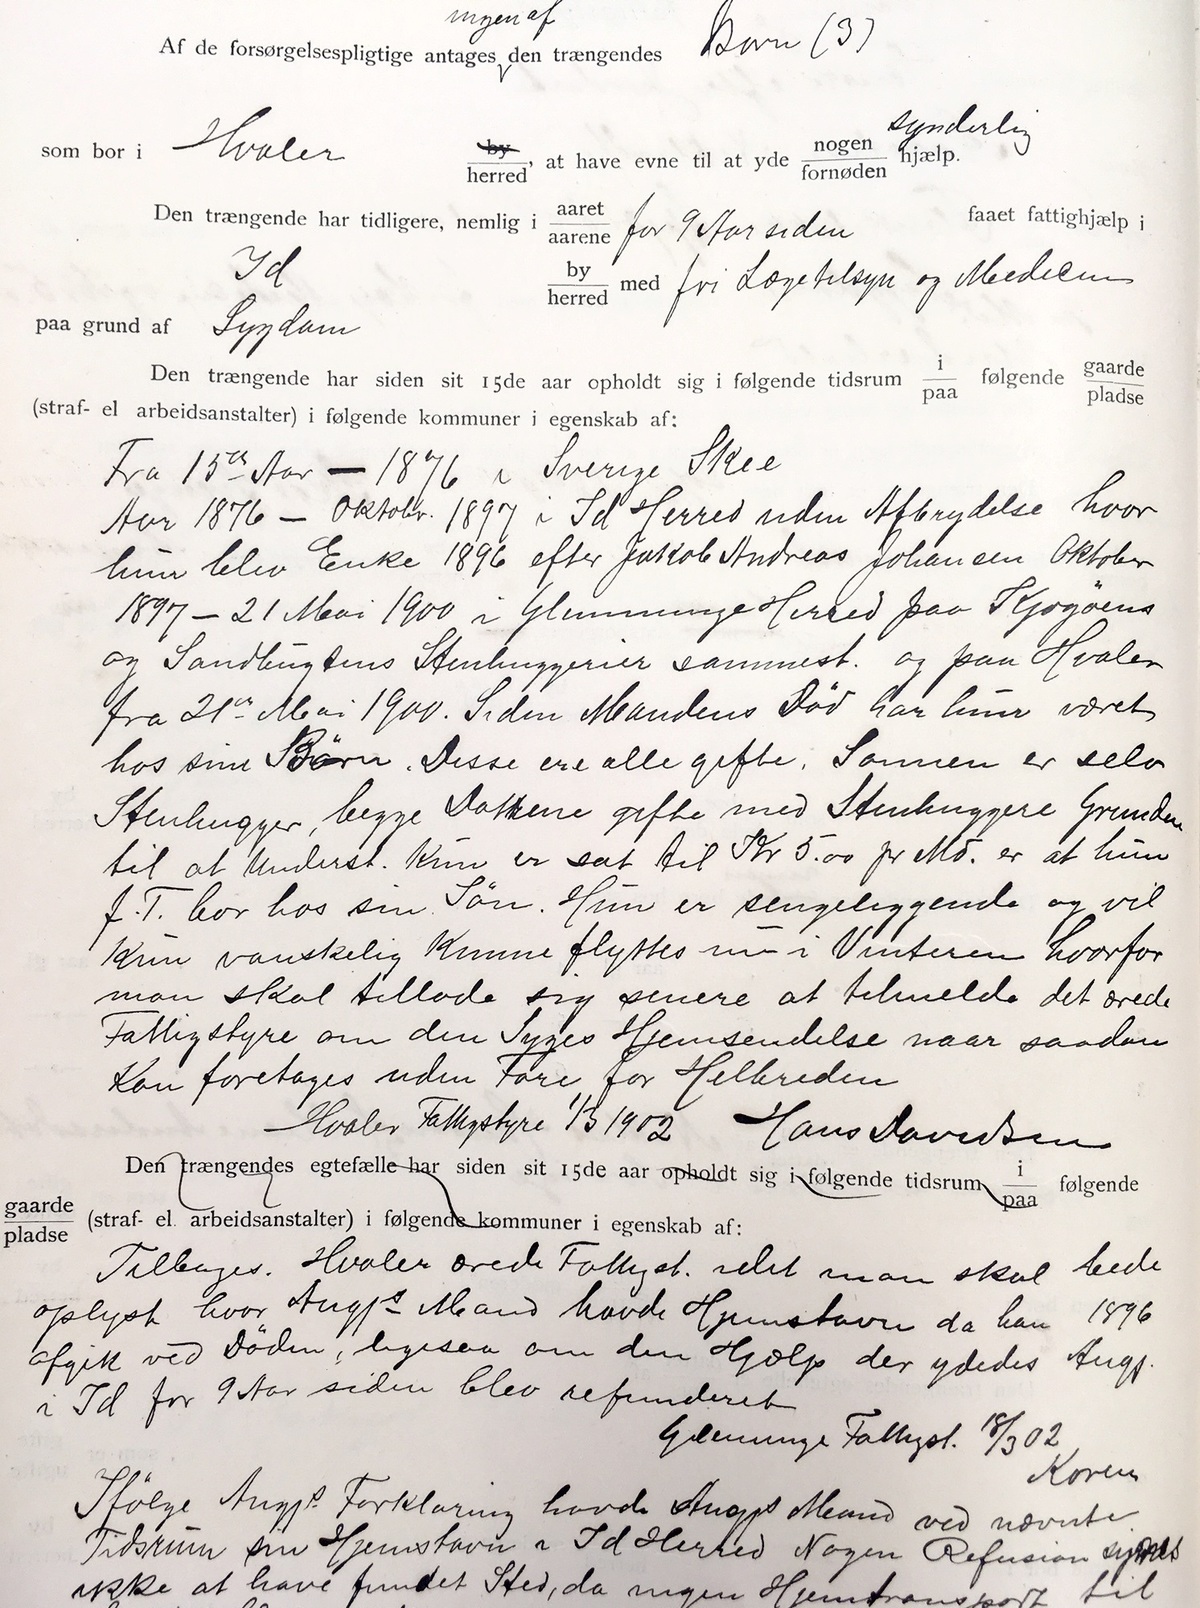 ingen af
Af de forsørgelsespligtige antages den trængendes Børn (3)
synderlig
som bor i Hvaler by herred, at have evne til at yde nogen fornøden hjælp.
Den trængende har tidligere, nemlig i aaret aarene for 9 Aar siden faaet fattighjælp i
Id by herred med fri Lægetilsyn og Medecin
paa grund af Sygdom
Den trængende har siden sit 15de aar opholdt sig i følgende tidsrum i paa følgende gaarde pladse
(straf- el arbeidsanstalter) i følgende kommuner i egenskab af:
Fra 15de Aar — 1876 i Sverige Skee
Aar 1876 — Oktobr. 1897 i Id Herred uden Afbrydelse hvor
hun blev Enke 1896 efter Jakob Andreas Johansen Oktober
1897 — 21 Mai 1900 i Glemminge Herred paa Kjøgöens
og Sandbugtens Stenhuggerier sammest. og paa Hvaler
fra 21de Mai 1900. Siden Mandens Död har hun været
hos sine Börn. Disse ere alle gifte. Sönnen er selv
Stenhugger, begge Døttrene gifte med Stenhuggere Grunden
til at Underst. kun er sat til Kr 5.00 pr Md. er at hun
f. T. bor hos sin Sön. Hun er sengeliggende og vil
kun vanskelig kunne flyttes nu i Vinteren hvorfor
man skal tillade sig senere at tilmelde det ærede
Fattigstyre om den Syges Hjemsendelse naar saadan
kan foretages uden Fare for Helbreden
Hvaler Fattigstyre 1/3 1902 Hans Davidsen
Den trængendes egtefælle har siden sit 15de aar opholdt sig i følgende tidsrum i paa følgende
gaarde pladse (straf- el. arbeidsanstalter) i følgende kommuner i egenskab af:
Tilbages. Hvaler ærede Fattigst. idet man skal bede
oplyst hvor Angjs Mand havde Hjemstavn da han 1896
afgik ved Döden, ligesaa om den Hjælp der ydedes Angj.
i Id for 9 Aar siden blev refunderet
Glemminge Fattigst. 18/3 02
Koren
Ifölge Angjs Forklaring havde Angjs Mand ved nævnte
Tidsrum sin Hjemstavn i Id Herred Nogen Refusion synes
ikke at have fundet Sted, da ingen Hjemtransport til